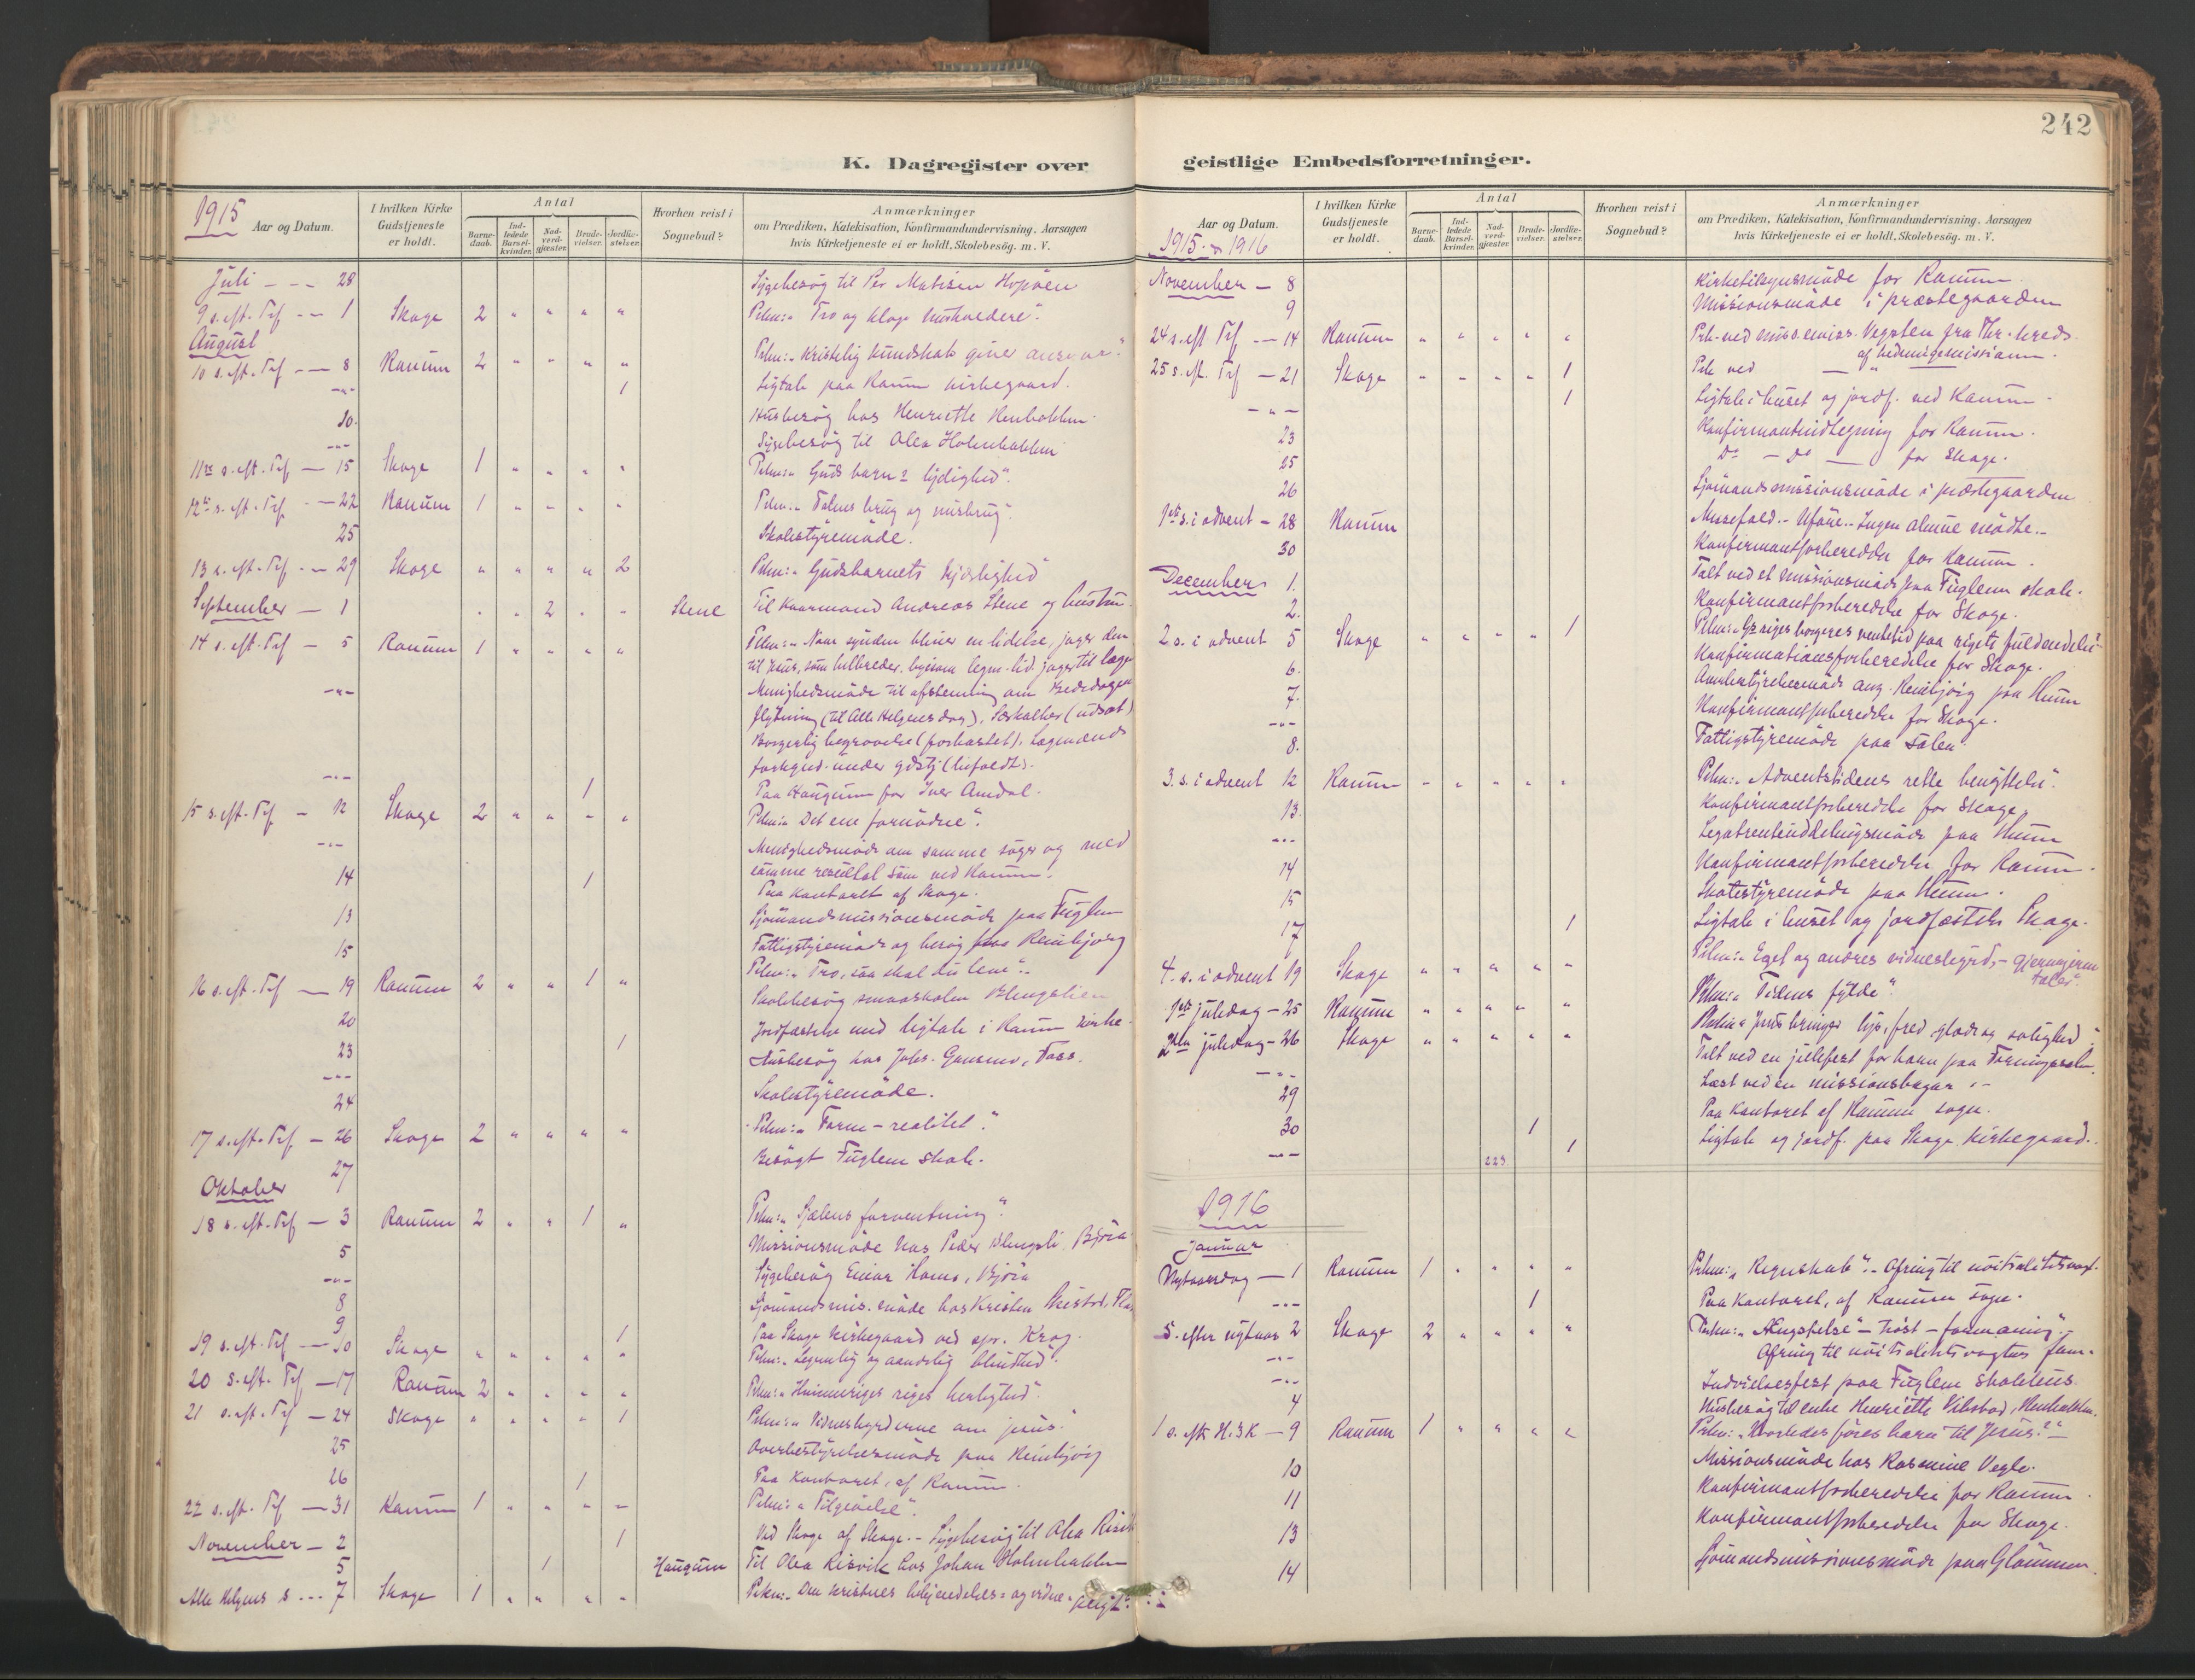 242
K. Dagregister over
1915
Aar og Datum.
I hvilken Kirke Gudstjeneste er holdt.
Antal
Barne-daab.
Ind-ledede Barsel-kvinder.
Nad-verd-gjæster.
Brude-vielser.
Jordfæ-stelser.
Hvorhen reist i Sognebud?
Anmærkninger
om Prædiken, Katekisation, Konfirmandundervisning. Aarsagen
hvis Kirketjeneste ei er holdt. Skolebesøg. m. V.
Juli - - - 28 Sygebesøg til Per Matisen
9 s. eft. Trf - - 1 Skage 2 " " " " Prkn: " Tro og kloge husholdere".
August
10 s. eft. Trf - - 8 Ranum 2 " " " " Prkn: " Kristelig kundskab giver ansvar".
- " - 1 Ligtale paa Ranum kirkegaard.
10. Husbesøg hos Henriette
- " - Sygebesøg til Olea
11te s. eft. Trf - 15 Skage 1 " " " " Prkn: " Guds barns lydighed".
12te s. eft. Trf - 22 Ranum 1 " " " " Prkn: " Talens brug og misbrug".
25 Skolestyremøde.
13 s. eft. Trf - - 29 Skage " " " " 2 Prkn: " Gudsbarnets kjærlighed"
September - 1 " " 2 " " Stene Til Kaarmand Andreas Stene og hustru.
14 s. eft. Trf - 5 Ranum 1 " " " " Prkn: " Naar synden bliver en lidelse, jager den
til Jesus, som helbreder, ligesom legm. lid. jager til læge
- " - Menighedsmøde til afstemning om Bededagens
flytning (til Alle Helgens dag), Særkalker (udsat)
Borgerlig begravelse (forkastet), Lægmænds
under gdstj (bifaldt).
- " - 1 Paa Haugum for Iver Amdal.
15 s. eft. Trf - 12 Skage 2 " " " " Prkn: " Det ene fornødne".
- " - Menighedsmøde om samme sager og med
samme resultat som ved Ranum.
14 1 Paa kontoret af Skage.
13 Sjømandsmissionsmøde paa Fuglem
15 Fattigstyremøde og besøg hos Reinbjørg
16 s. eft. Trf - 19 Ranum 2 " " 1 " Prkn: " Tro, saa skal du leve".
20 Skolebesøg smaaskolen
23 1 Jordfæstelse med ligtale i Ranum kirke.
- " - Husbesøg hos Johs. Gansmo, Foss.
24 Skolestyremøde.
17 s. eft. Trf - 26 Skage 2 " " " " Prkn: " Form - realitet".
27 Besøgt Fuglem skole.
Oktober
18 s. eft. Trf - 3 Ranum 2 " " 1 " Prkn: " Sjælens forventning".
5 Missionsmøde hos Peder Blengsli Bjøra
- " - Sygebesøg Einar Bjøra
8 Sjømandsmis. møde hos Kristen
9 1 Paa Skage kirkegaard ved spr. Krog.
19 s. eft. Trf - - 10 Skage " " " " " Prkn: " Legemlig og aandelig blindhed".
20 s. eft. Trf - 17 Ranum 2 " " " " Prkn: " Himmeriges riges herlighed".
21 s. eft. Trf - 24 Skage " " " " 1 Prkn: " Vidnesbyrderne om Jesus".
25 Overbestyrelsesmøde paa Reinbjørg
26 1 Paa kontoret, af Ranum.
22 s. eft. Trf - 31 Ranum 1 " " " " Prkn: " Tilgivelse".
November - 2 1 Ved Skage af Skage. - Sygebesøg til Olea Risvik
5 1 Haugum Til Olea Risvik hos Johan
Alle Helgens s - - - 7 Skage 1 " " " " Prkn: " Den kristnes bekjendelses- og vidne- pligt".
geistlige Embedsforretninger.
Aar og Datum.
1915 - 1916
I hvilken Kirke Gudstjeneste er holdt.
Antal
Barne-daab.
Ind-ledede Barsel-kvinder.
Nad-verd-gjæster.
Brude-vielser.
Jordfæ-stelser.
Hvorhen reist i Sognebud?
Anmærkninger
om Prædiken, Katekisation, Konfirmandundervisning. Aarsagen
hvis Kirketjeneste ei er holdt. Skolebesøg. m. V.
November - 8 Kirketilsynsmøde for Ranum
9 Missionsmøde i præstegaarden
24 s. eft Trf - - 14 Ranum " " " " " Prk. ved
af hedningemissionen.
25 s. eft. Trf - 21 Skage " " " " 1 Prk ved - " -
- " - 1 Ligtale i huset og jordf. ved Ranum.
23 Konfirmantindtegning for Ranum.
25 Do - Do - for Skage.
26 Sjømandsmissionsmøde i præstegaarden
1ste s. i advent - 28 Ranum Messefald. - Uføre. - Ingen almue mødte. -
30 Konfirmantforberedelse for Ranum.
December 1. Talt ved et missionsmøde paa Fuglem skole.
2. Konfirmantforberedelse for Skage.
2 s. i advent 5 Skage " " " " 1 Prkn: " ventetid paa rigets fuldendelse".
6. Konfirmationsforberedelse for Skage.
7. Overbestyrelsesmøde ang. Reinbjørg paa Hum
- " - Konfirmantforberedelse for Skage.
8. Fattigstyremøde paa
3. s. i advent 12 Ranum " " " " " Prkn: " Adventstidens rette benyttelse".
13. Konfirmantforberedelse for Skage.
- " - paa Hum
14 Konfirmantforberedelse for Ranum.
15 Skolestyremøde paa Hum.
17 1 Ligtale i huset og jordfæstelse Skage.
4. s. i advent 19 Skage " " " " " Prkn: " Eget og andres vidnesbyrd, - gjerningerne taler".
1ste juledag - 25 Ranum " " " " " Prkn: " Tidens fylde".
2den juledag - 26 Skage " " " " " Prkn: " Jesus bringer lys, fred, glæde og salighed".
- " - Talt ved en julefest for børn paa
29 Læst ved en missionsbasar
30 1 Paa kontoret af Ranum sogn.
- " - 223 1 Ligtale og jordf. paa Skage kirkegaard.
1916
Januar
Nytaarsdag - 1 Ranum 1 " " " " Prkn: " Regnskab". - Ofring til nøitralitetsvagt.
- " - 1 Paa kontoret, af Ranum sogn.
S. efter nytaar 2 Skage 2 " " " " Prkn: " Ængstelse - trøst - formaning". -
- " - Ofring til nøitralitetsvagtens fam.
- " - Indvielsesfest paa Fuglem skolehus.
4 Husbesøg til enke Henriette
1 s. eft H. 3 K - 9 Ranum 1 " " " " Prkn: " Hvorledes føres barn til Jesus?" -
10 Missionsmøde hos
11 Konfirmantforberedelse for Ranum.
13 Konfirmantforberedelse for Skage.
14 Sjømandsmissionsmøde paa Glømmen.